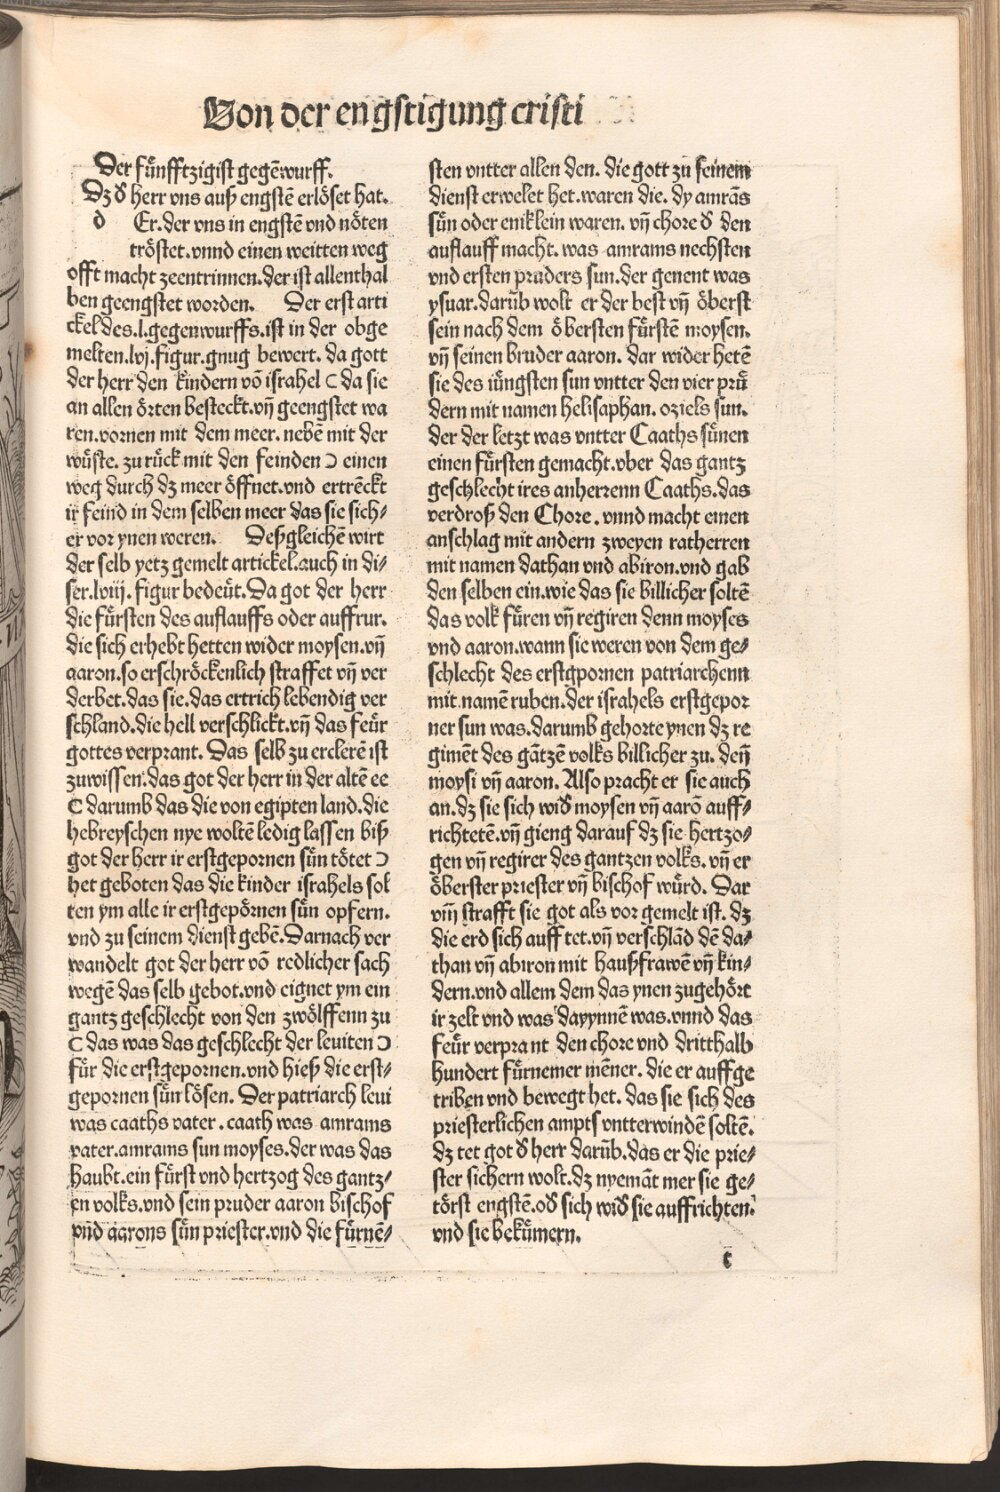 Von der engstigung cristi
Der fünfftzigist gegēwurff.
Dz d̄ herr vns auß engstē erlöset hat.
d Er.der vns in engstē vnd nöten
tröstet.vnnd einen weitten weg
offt macht zeentrinnen.der ist allenthal
ben geengstet worden. Der erst arti
ckel des.l.gegenwurffs.ist in der obge
melten.lvj.figur.gnug bewert. da gott
der herr den kindern vō israhel ⊂ da sie
an allen örten besteckt.vn̄ geengstet wa
ren.vornen mit dem meer. nebē mit der
wüste. zu rück mit den feinden ⊃ einen
weg durch dz meer öffnet.vnd ertrēckt
ir feind in dem selben meer das sie sich⸗
er vor ynen weren. Deßgleichē wirt
der selb yetz gemelt artickel.auch in di⸗
ser.lviij.figur bedeüt.Da got der herr
die fürsten des auflauffs oder auffrur.
die sich erhebt hetten wider moysen.vn̄
aaron.so erschröckenlich straffet vn̄ ver
derbet.das sie.das ertrich lebendig ver
schland.die hell verschlickt.vn̄ das feür
gottes verprant. Das selb zu erclerē ist
zuwissen.das got der herr in der altē ee
⊂ darumb das die von egipten land.die
hebreyschen nye woltē ledig lassen biß
got der herr ir erstgepornen sün tötet ⊃
het geboten das die kinder israhels sol
ten ym alle ir erstgepörnen sün opfern.
vnd zu seinem dienst gebē.Darnach ver
wandelt got der herr vō redlicher sach
wegē das selb gebot.vnd eignet ym ein
gantz geschlecht von den zwölffenn zu
⊂ das was das geschlecht der leuiten ⊃
für die erstgepornen.vnd hieß die erst⸗
gepornen sün lösen. Der patriarch leui
was caaths vater.caath was amrams
vater.amrams sun moyses.der was das
haubt.ein fürst vnd hertzog des gantz⸗
en volks.vnd sein pruder aaron bischof
vnd aarons sün priester.vnd die fürnē⸗
sten vntter allen den. die gott zu seinem
dienst erwelet het.waren die. dy amrās
sün oder eniklein waren. vn̄ chore d̄ den
auflauff macht.was amrams nechsten
vnd ersten pruders sun.der genent was
ysuar.darūb wolt er der best vn̄ öberst
sein nach dem öbersten fürstē moysen.
vn̄ seinen bruder aaron. dar wider hetē
sie des iüngsten sun vntter den vier prü
dern mit namen helisaphan. oziels sun.
der der letzt was vntter Caaths sünen
einen fürsten gemacht.vber das gantz
geschlecht ires anherrenn Caaths.das
verdroß den Chore.vnnd macht einen
anschlag mit andern zweyen ratherren
mit namen dathan vnd abiron.vnd gab
den selben ein.wie das sie billicher soltē
das volk füren vn̄ regiren denn moyses
vnd aaron.wann sie weren von dem ge⸗
schlecht des erstgpornen patriarchenn
mit namē ruben.der israhels erstgepor
ner sun was.darumb gehorte ynen dz re
gimēt des gātzē volks billicher zu. den̄
moysi vn̄ aaron. Also pracht er sie auch
an.dz sie sich wid̄ moysen vn̄ aarō auff⸗
richtetē.vn̄ gieng darauf dz sie hertzo⸗
gen vn̄ regirer des gantzen volks. vn̄ er
öberster priester vn̄ bischof würd. Dar
vm̄ strafft sie got als vor gemelt ist. dz
die erd sich auff tet.vn̄ verschlād dē da⸗
than vn̄ abiron mit haußfrawē vn̄ kin⸗
dern.vnd allem dem das ynen zugehört
ir zelt vnd was dayynnē was.vnnd das
feür verprant den chore vnd dritthalb
hundert fürnemer mēner. die er auffge
triben vnd bewegt het. das sie sich des
priesterlichen ampts vntterwindē soltē.
dz tet got d̄ herr darūb.das er die prie⸗
ster sichern wolt.dz nyemāt mer sie ge⸗
törst engstē.od̄ sich wid̄ sie auffrichten.
vnd sie bekümern.
c